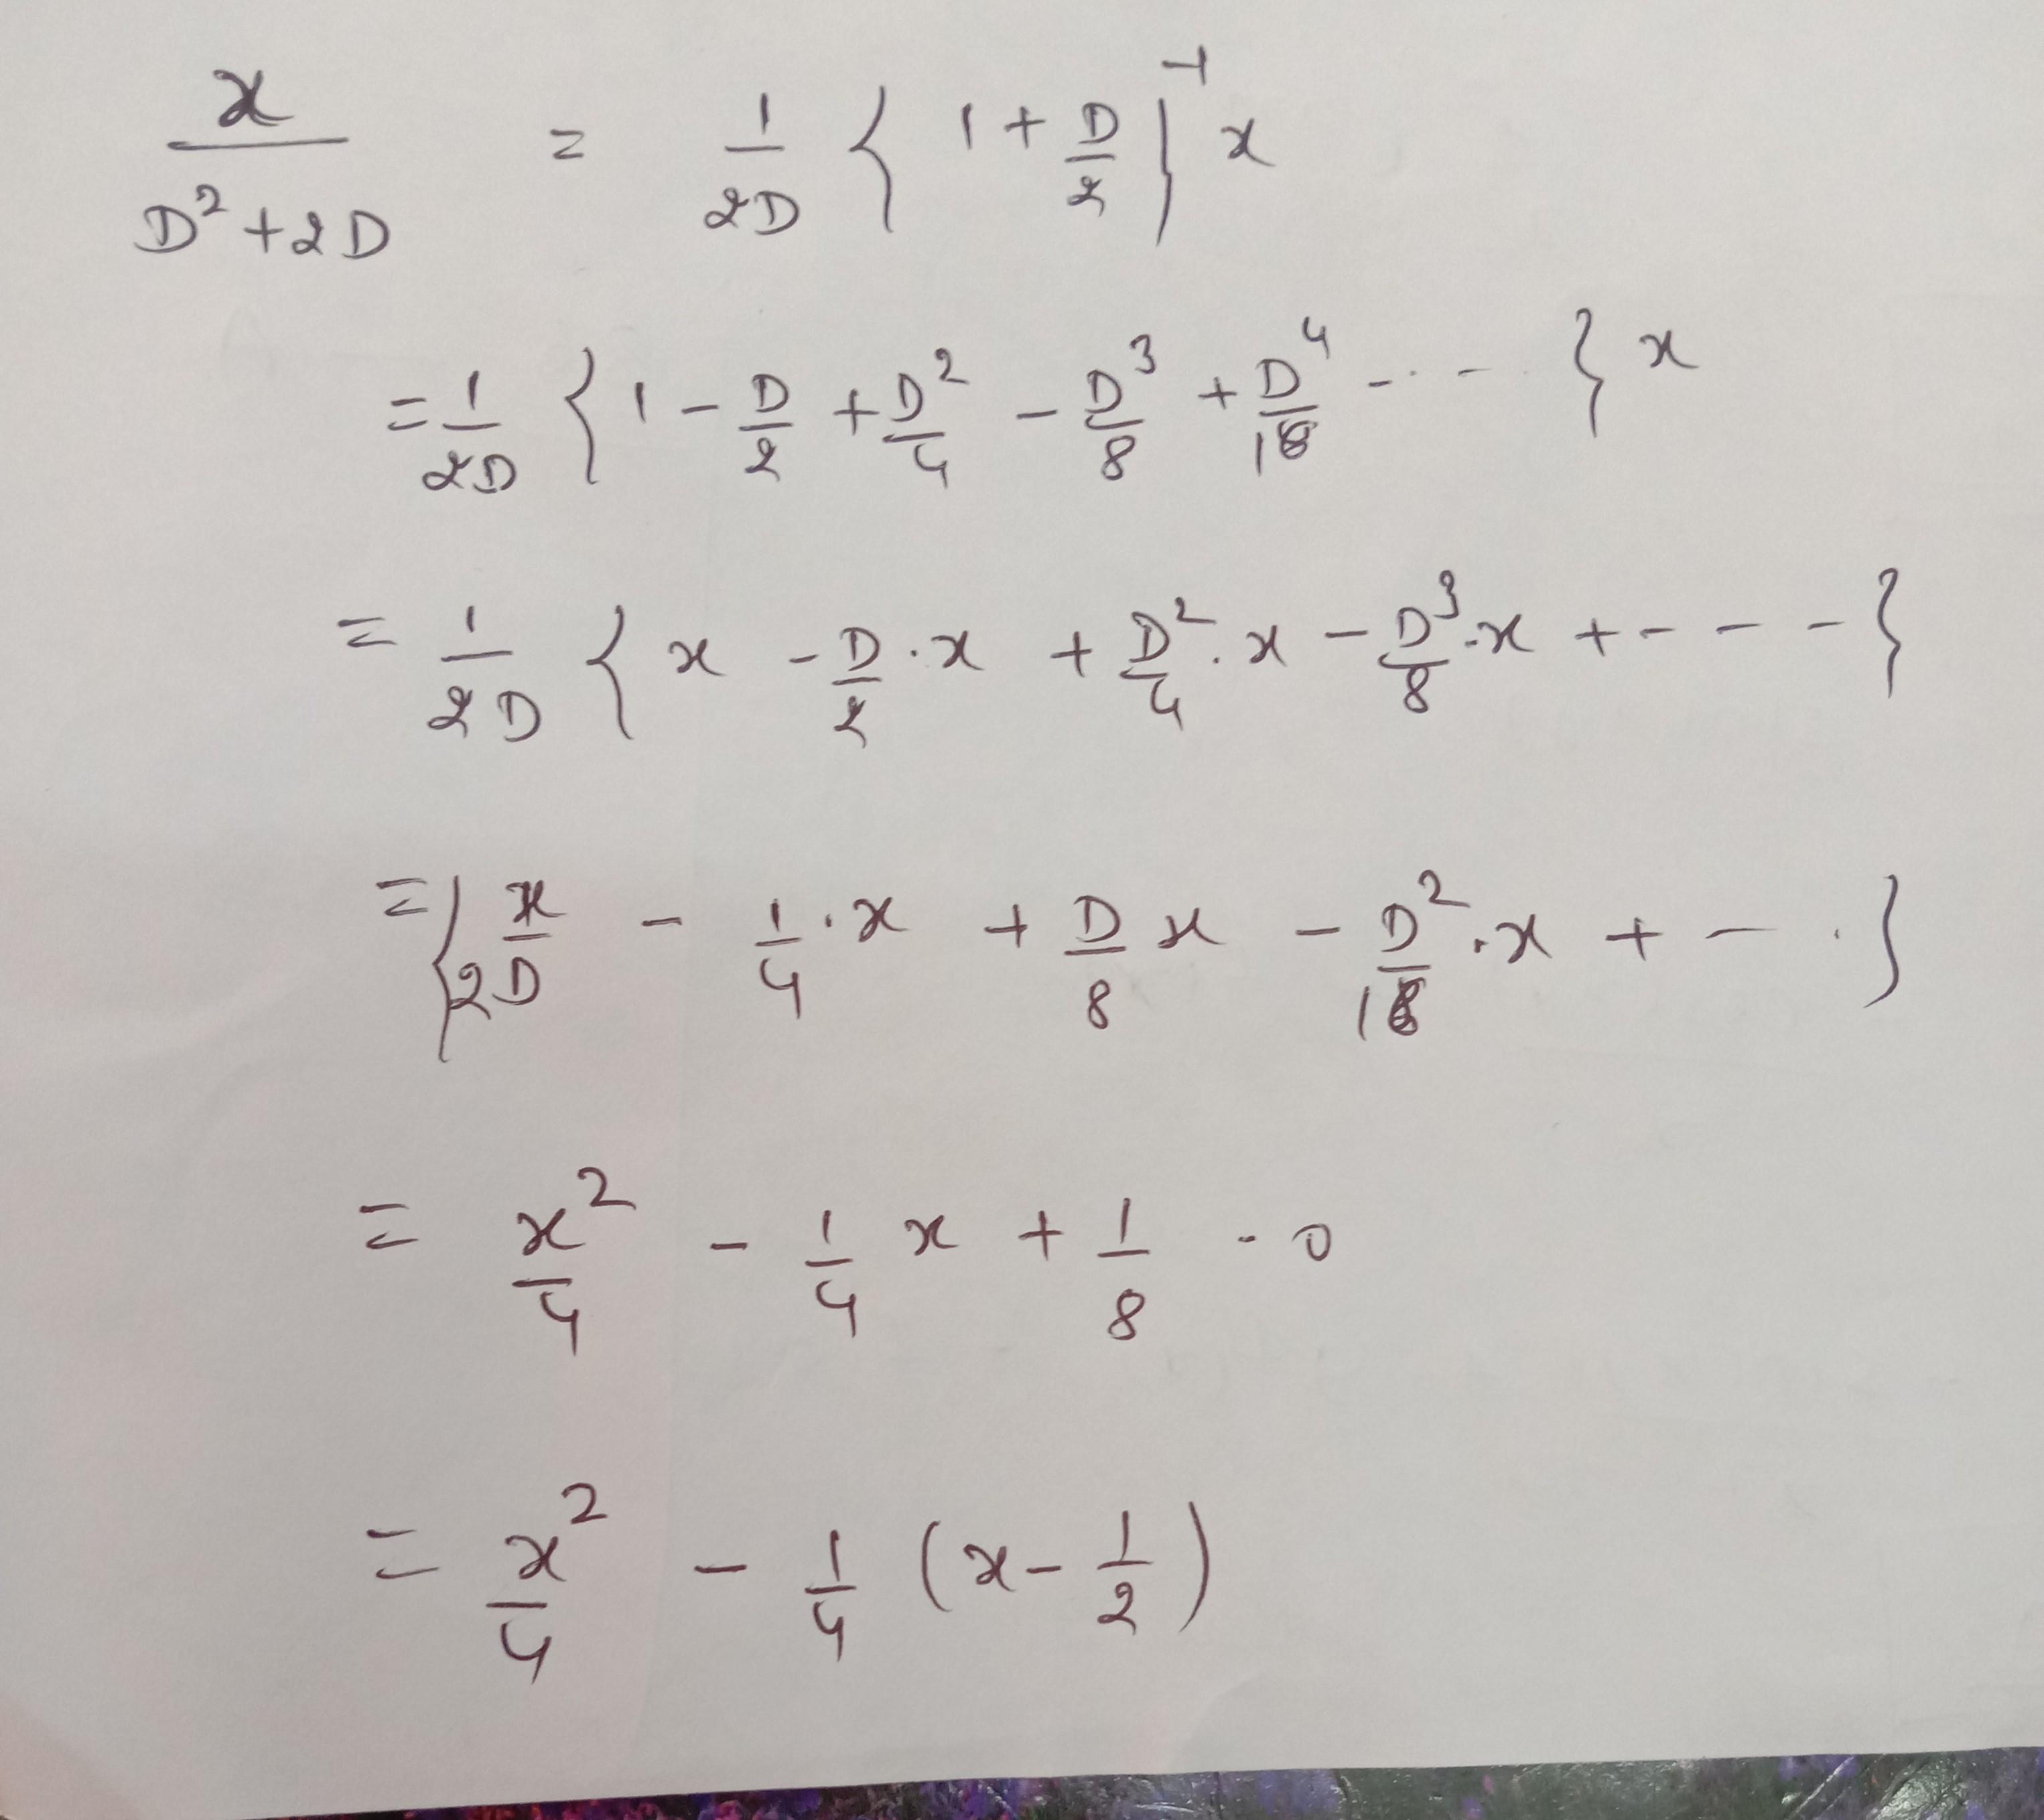 x/(D²+2D) = 1/2D { 1 + D/2 }⁻¹ x
= 1/2D { 1 - D/2 + D²/4 - D³/8 + D⁴/16 - ... - . } x
= 1/2D { x - D/2 . x + D²/4 . x - D³/8 . x + - - - - }
= { x/2D - 1/4 . x + D/8 x - D²/16 . x + - . }
= x²/4 - 1/4 x + 1/8 - 0
= x²/4 - 1/4 (x - 1/2)